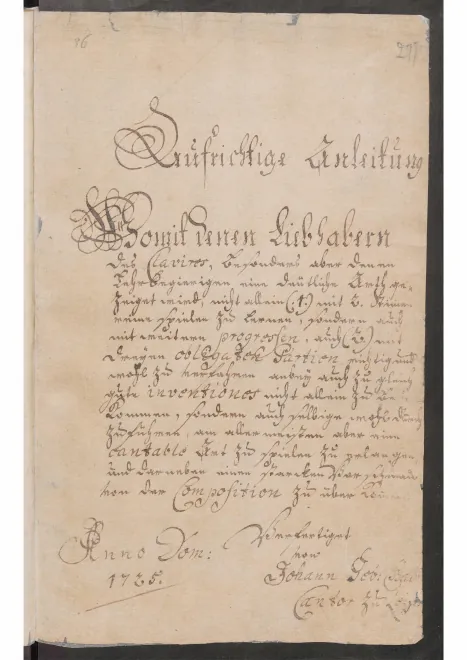 16
Aufrichtige Anleitung
Womit denen Liebhabern
des Clavires, besonders aber denen
Lehrbegierigen eine deütliche Arth ge-
zeiget wird, nicht allein (1.) mit 2. Stim̄en
reine spielen zu lernen, sondern auch
mit weitern progressen, auch (2.) mit
dreyen obligaten Partien richtig und
wohl zu verfahren anbey auch zu gleich
gute inventiones nicht allein zu be-
kommen, sondern auch selbige wohl durch
zuführen, am allermeisten aber eine
cantable Art zu spielen zu erlangen
und darneben einen starcken Vorschmack
von der Composition zu über kommen.
Verfertiget
Anno Dom: von
1725. Johann
Cantor zu